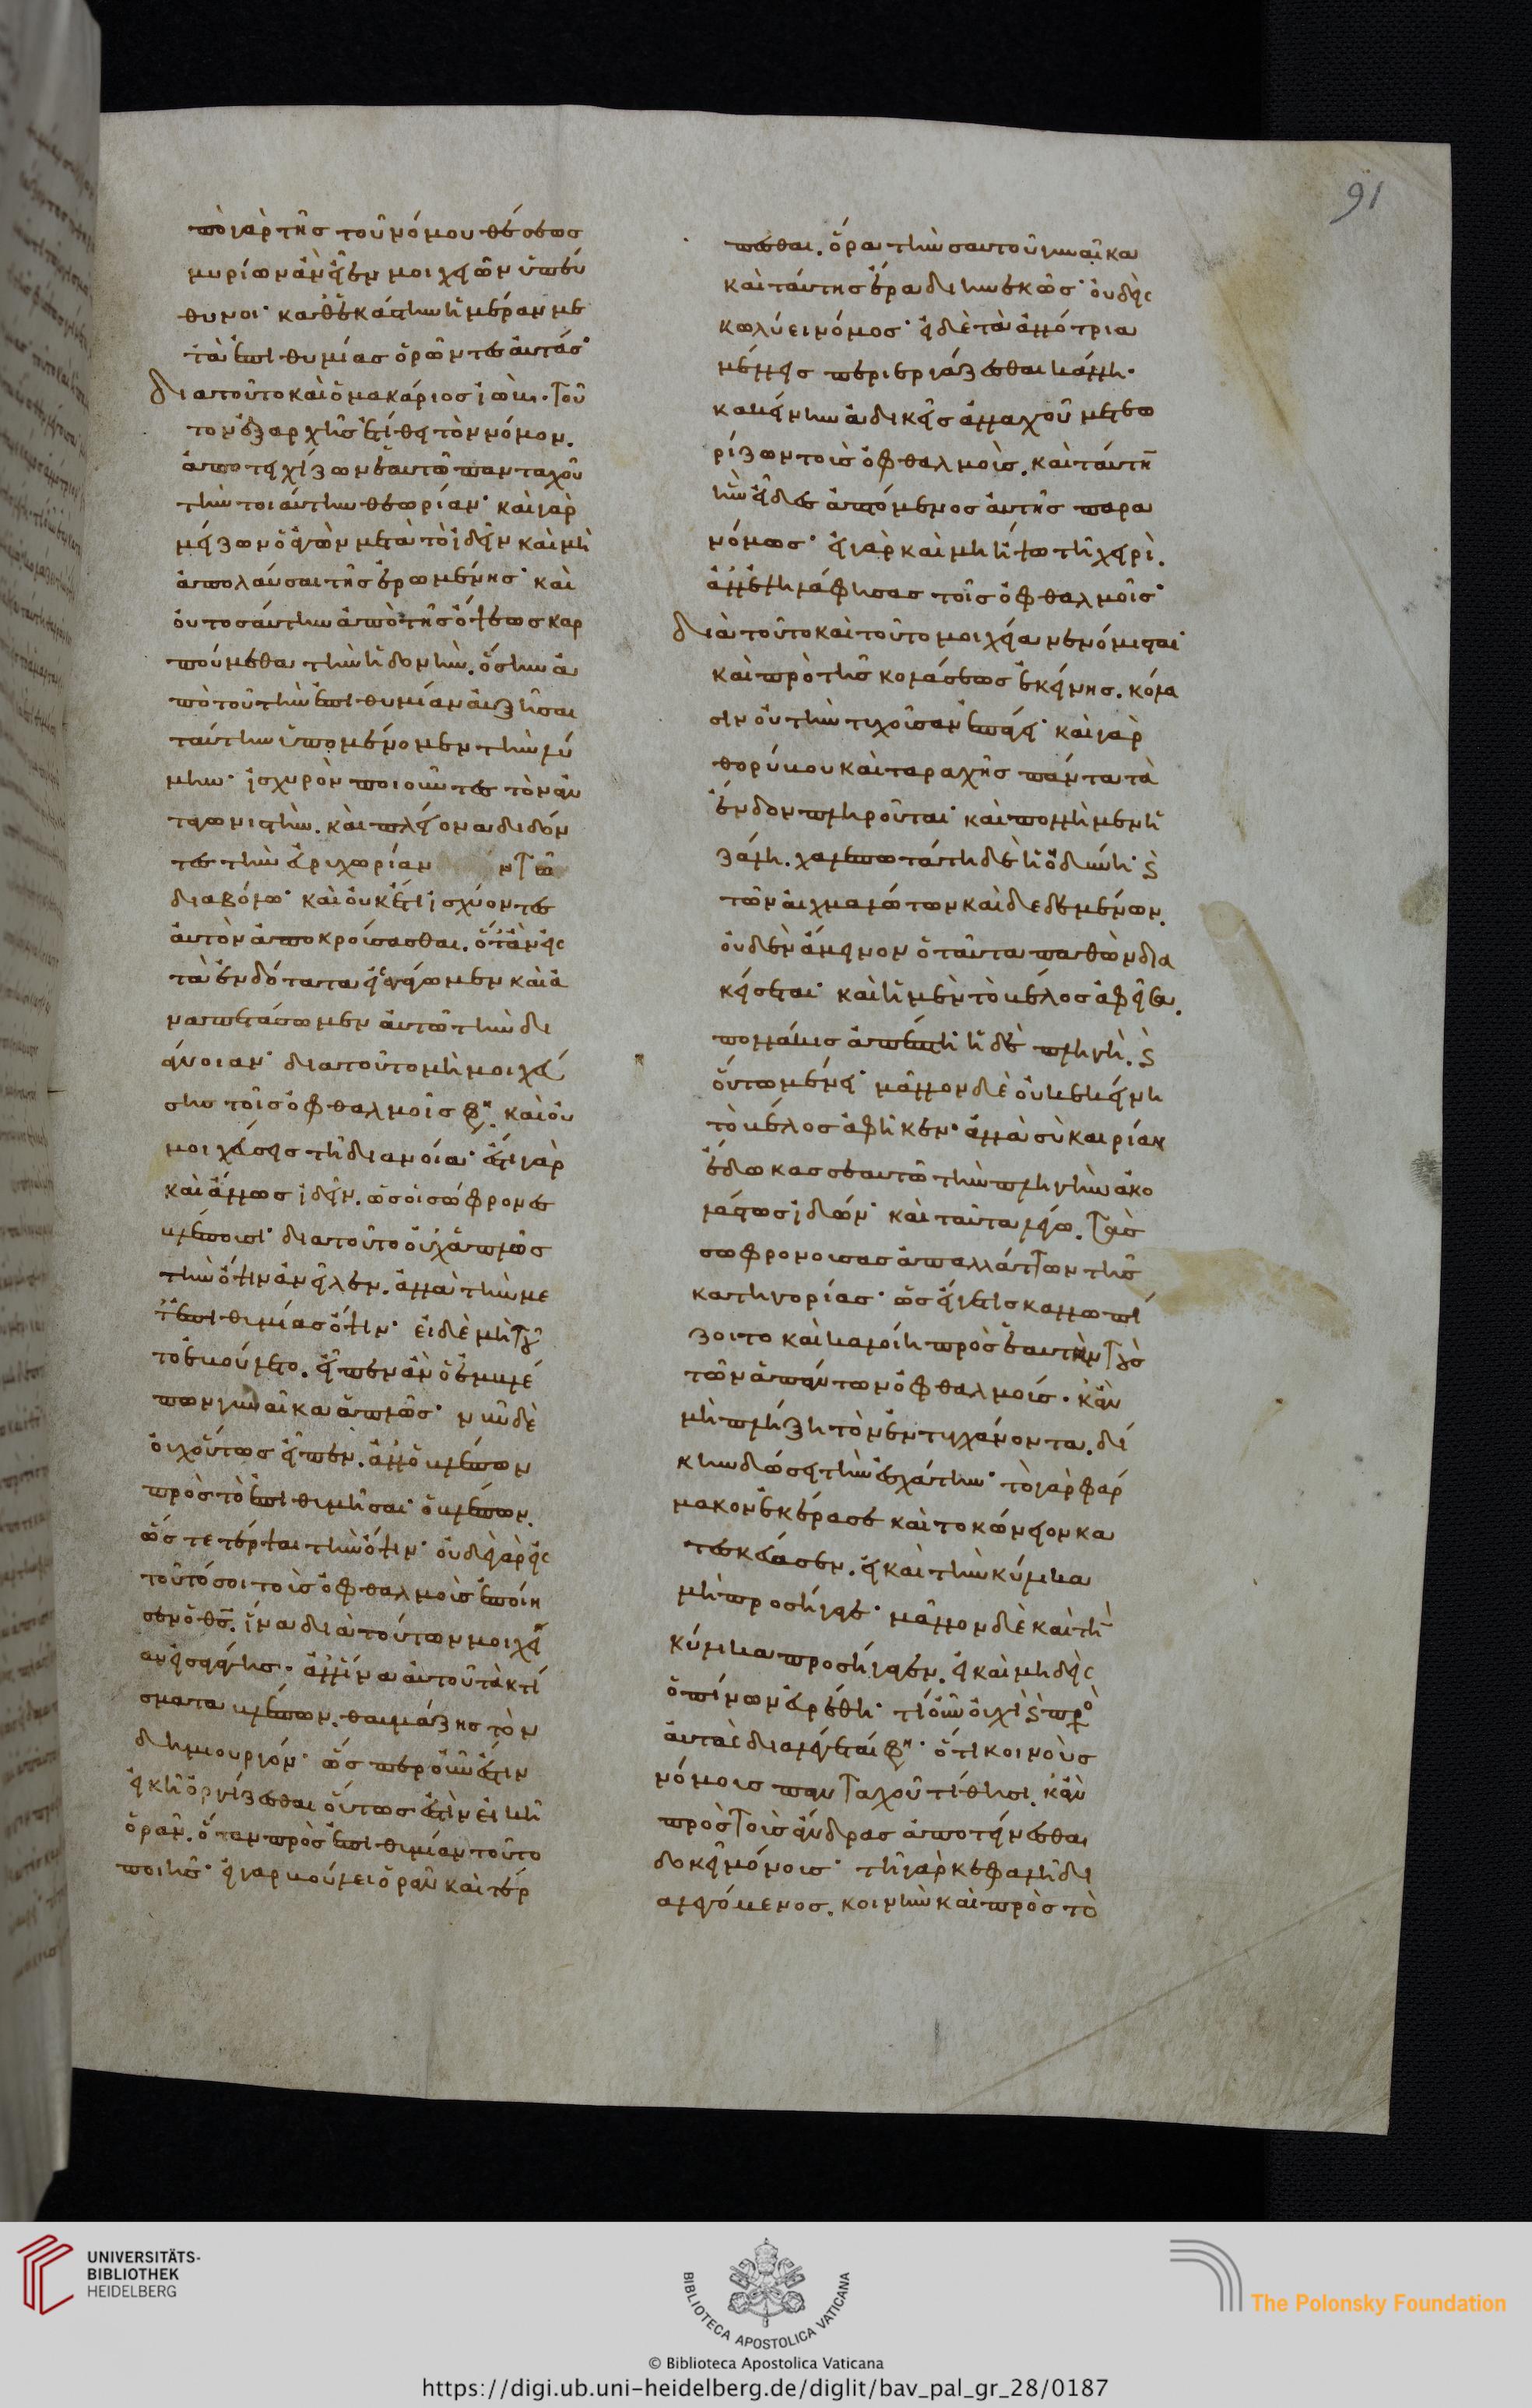 πὸ γὰρ τῆς τοῦ νόμου θέσεως
μυρίων ἂν εἶεν μοιχειῶν ὑπεύ
θυνοι· καθ' ἑκάστην ἡμέραν με
τὰ ἐπιθυμίας ὁρῶντες αὐτάς·
διατοῦτο καὶ ὁ μακάριος ἰὼβ. τοῦ
τον ἐξαρχῆς ἐτίθει τὸν νόμον.
ἀποτειχίζων ἑαυτῶ πανταχοῦ
τὴν τοιαύτην θεωρίαν· καὶ γὰρ
μείζων ὁ ἀγὼν μετὰ τὸ ἰδεῖν καὶ μὴ
ἀπολαῦσαι τῆς ἐρωμένης· καὶ
οὐ τοσαύτην ἀπὸ τῆς ὄψεως καρ
πούμεθα τὴν ἡδονὴν. ὅσην ἀ
πὸ τοῦ τὴν ἐπιθυμίαν αὐξῆσαι
ταύτην ὑπομένομεν τὴν λύ
μην· ἰσχυρὸν ποιοῦντες τὸν ἀν
ταγωνιστὴν. καὶ πλείονα διδόν
τες τὴν εὐριχωρίαν τῶ
διαβόλω· καὶ οὐκέτι ἰσχύοντες
αὐτὸν ἀποκρούσασθαι. ὅτ' ἂν εἰς
τὰ ἐνδότατα εἰσαγάγωμεν καὶ ἀ
ναπετάσωμεν αὐτῶ τὴν δι
άνοιαν· διατοῦτο μὴ μοιχεύ
σης τοῖς ὀφθαλμοῖς φη. καὶ οὐ
μοιχεύσεις τῆ διανοία· ἔστι γὰρ
καὶ ἄλλως ἰδεῖν. ὡς οἱ σώφρονες
βλέπουσι· διατοῦτο οὐχ ἁπλῶς
τὴν ὄψιν ἀνεῖλεν. ἀλλὰ τὴν με
τ' ἐπιθυμίας ὄψιν· εἰ δὲ μὴ τοῦ
το ἐβούλετο. εἶπεν ἂν ὁ ἐμβλέ
πων γυναῖκα ἁπλῶς· νῦν δὲ
οὐχ οὕτως εἶπεν. ἀλλ' ὁ βλέπων
πρὸς τὸ ἐπιθυμῆσαι· ὁ βλέπων.
ὥστε τέρψαι τὴν ὄψιν· οὐδὲ γὰρ εἰς
τοῦτό σοι τοὺς ὀφθαλμοὺς ἐποίη
σεν ὁ θς. ἵνα διὰ τούτων μοιχεί
αν εἰσαγάγης· ἀλλ' ἵνα αὐτοῦ τὰ κτί
σματα βλέπων. θαυμάζης τὸν
δημιουργόν· ὥσπερ οὖν ἔστιν
εἰκῆ ὀργίζεσθαι οὕτως ἔστιν εἰκῆ
ὁρᾶν. ὅταν πρὸς ἐπιθυμίαν τοῦτο
ποιῆς· εἰ γὰρ βούλει ὁρᾶν καὶ τέρ
πεσθαι. ὅρα τὴν σαυτοῦ γυναῖκα
καὶ ταύτης ἔρα διηνεκῶς· οὐδεὶς
κωλύει νόμος· εἰ δὲ τὰ ἀλλότρια
μέλλεις περιεργάζεσθαι κάλλη.
κακείνην ἀδικεῖς ἀλλαχοῦ μετεω
ρίζων τοὺς ὀφθαλμοὺς. καὶ ταύτην
ἣν εἶδες ἁπτόμενος αὐτῆς παρα
νόμως· εἰ γὰρ καὶ μὴ ἥψω τῆ χειρὶ.
ἀλλ' ἐψηλάφησας τοῖς ὀφθαλμοῖς·
διὰ τοῦτο καὶ τοῦτο μοιχεία νενόμισται·
καὶ πρὸ τῆς κολάσεως ἐκείνης. κόλα
σιν οὐ τὴν τυχοῦσαν ἐπάγει· καὶ γὰρ
θορύβου καὶ ταραχῆς πάντα τὰ
ἔνδον πληροῦται· καὶ πολλὴ μὲν ἡ
ζάλη. χαλεπωτάτη δὲ ἡ ὀδύνη· καὶ
τῶν αἰχμαλώτων καὶ δεδεμένων.
οὐδὲν ἄμεινον ὁ ταῦτα παθὼν δια
κείσεται· καὶ ἡ μὲν τὸ βέλος ἀφεῖσα.
πολλάκις ἀπέπτη ἡ δὲ πληγὴ. καὶ
οὕτω μένει· μᾶλλον δὲ οὐκ ἐκείνη
τὸ βέλος ἀφῆκεν· ἀλλὰ σὺ καιρίαν
ἔδωκας σεαυτῶ τὴν πληγὴν ἀκο
λάστως ἰδών· καὶ ταῦτα λέγω. τὰς
σωφρονούσας ἀπαλλάττων τῆς
κατηγορίας· ὡς εἴγε τις καλλωπί
ζοιτο καὶ καλοίη πρὸς ἑαυτὴν τοὺς
τῶν ἀπαντώντων ὀφθαλμούς. κἂν
μὴ πλήξη τὸν ἐντυχάνοντα. δί
κην δώσει τὴν ἐσχάτην· τὸ γὰρ φάρ
μακον ἐκέρασε καὶ το κώνειον κα
τεσκεύασεν. εἰ καὶ τὴν κύλικα
μὴ προσήγαγε· μᾶλλον δὲ καὶ τὴν
κύλικα προσήγαγεν. εἰ καὶ μηδεὶς
ὁ πίνων εὑρέθη· τί οὖν οὐχὶ καὶ πρὸς
αὐτὰς διαλέγεται φη· ὅτι κοινοὺς
νόμους πανταχοῦ τίθησι. κἂν
πρὸς τοὺς ἄνδρας ἀποτείνεσθαι
δοκεῖ μόνους· τῆ γὰρ κεφαλῆ δι
αλεγόμενος. κοινὴν καὶ πρὸς τὸ
91
UNIVERSITÄTS-
BIBLIOTHEK
HEIDELBERG
BIBLIOTECA APOSTOLICA VATICANA
The Polonsky Foundation
© Biblioteca Apostolica Vaticana
https://digi.ub.uni-heidelberg.de/diglit/bav_pal_gr_28/0187